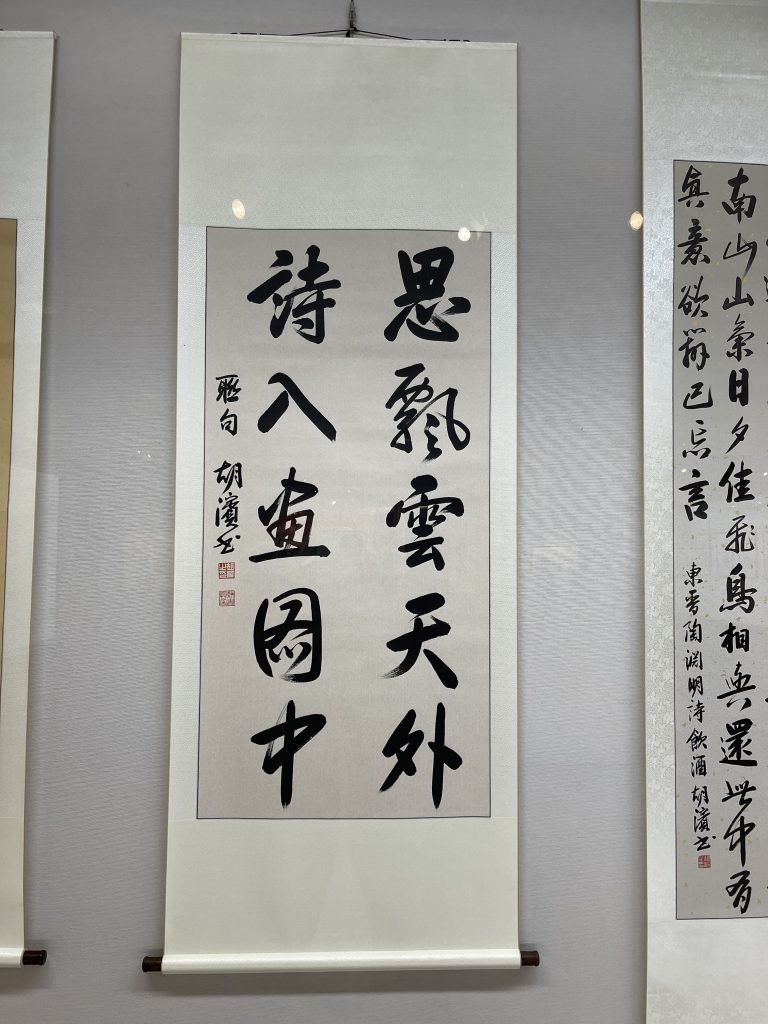 思飄雲天外
詩入画图中
聯句 胡濱书
南山山氣日夕佳飛鳥相與還此中有
真意欲辯已忘言
東晉陶淵明詩飲酒胡濱书